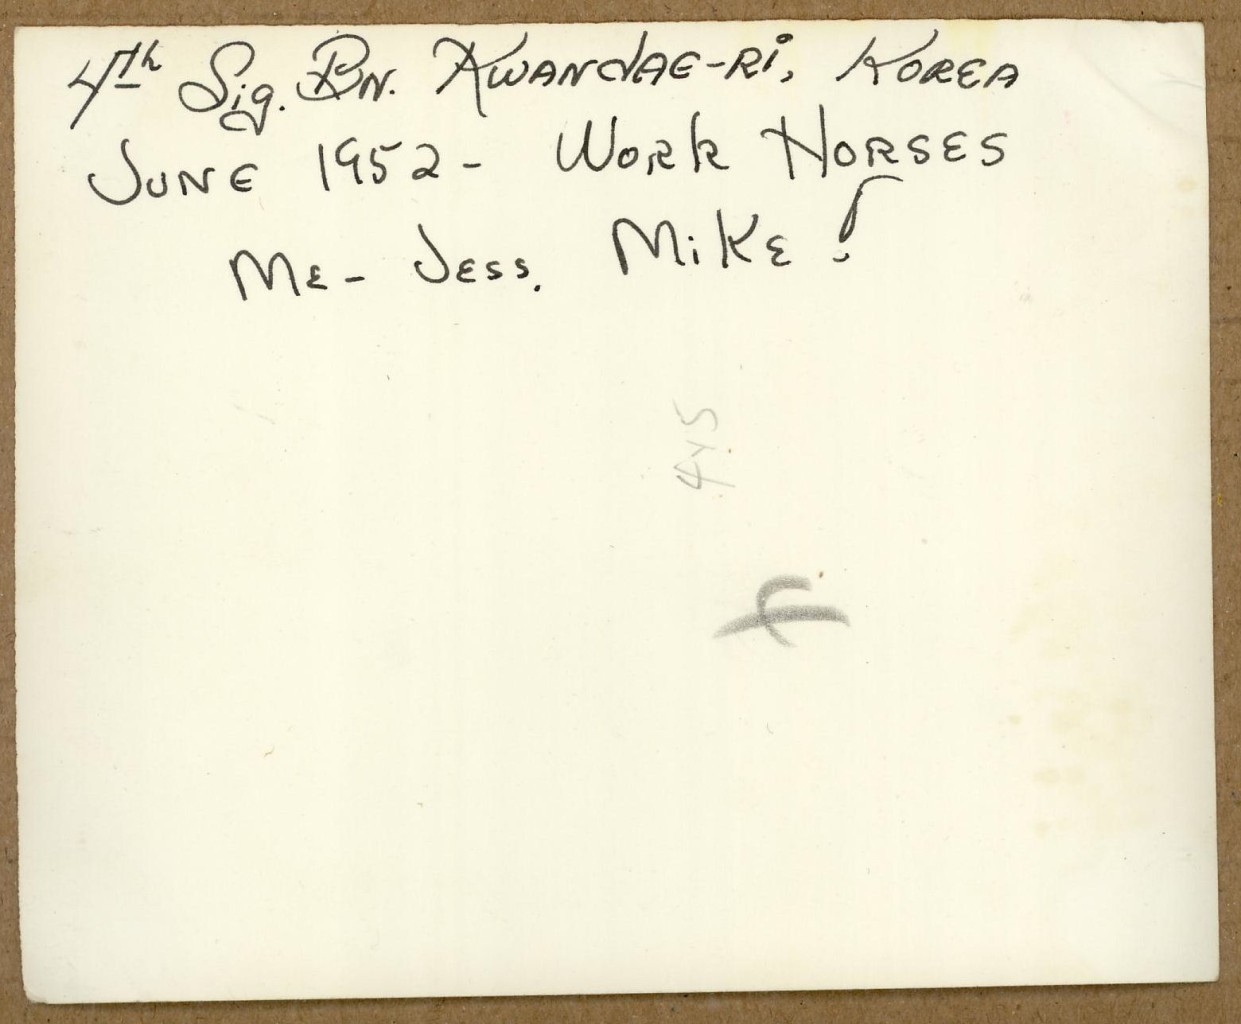 4th Sig. Bn. Kwandae-Ri, Korea
June 1952 - Work Horses
Me - Jess. Mike!
4x5